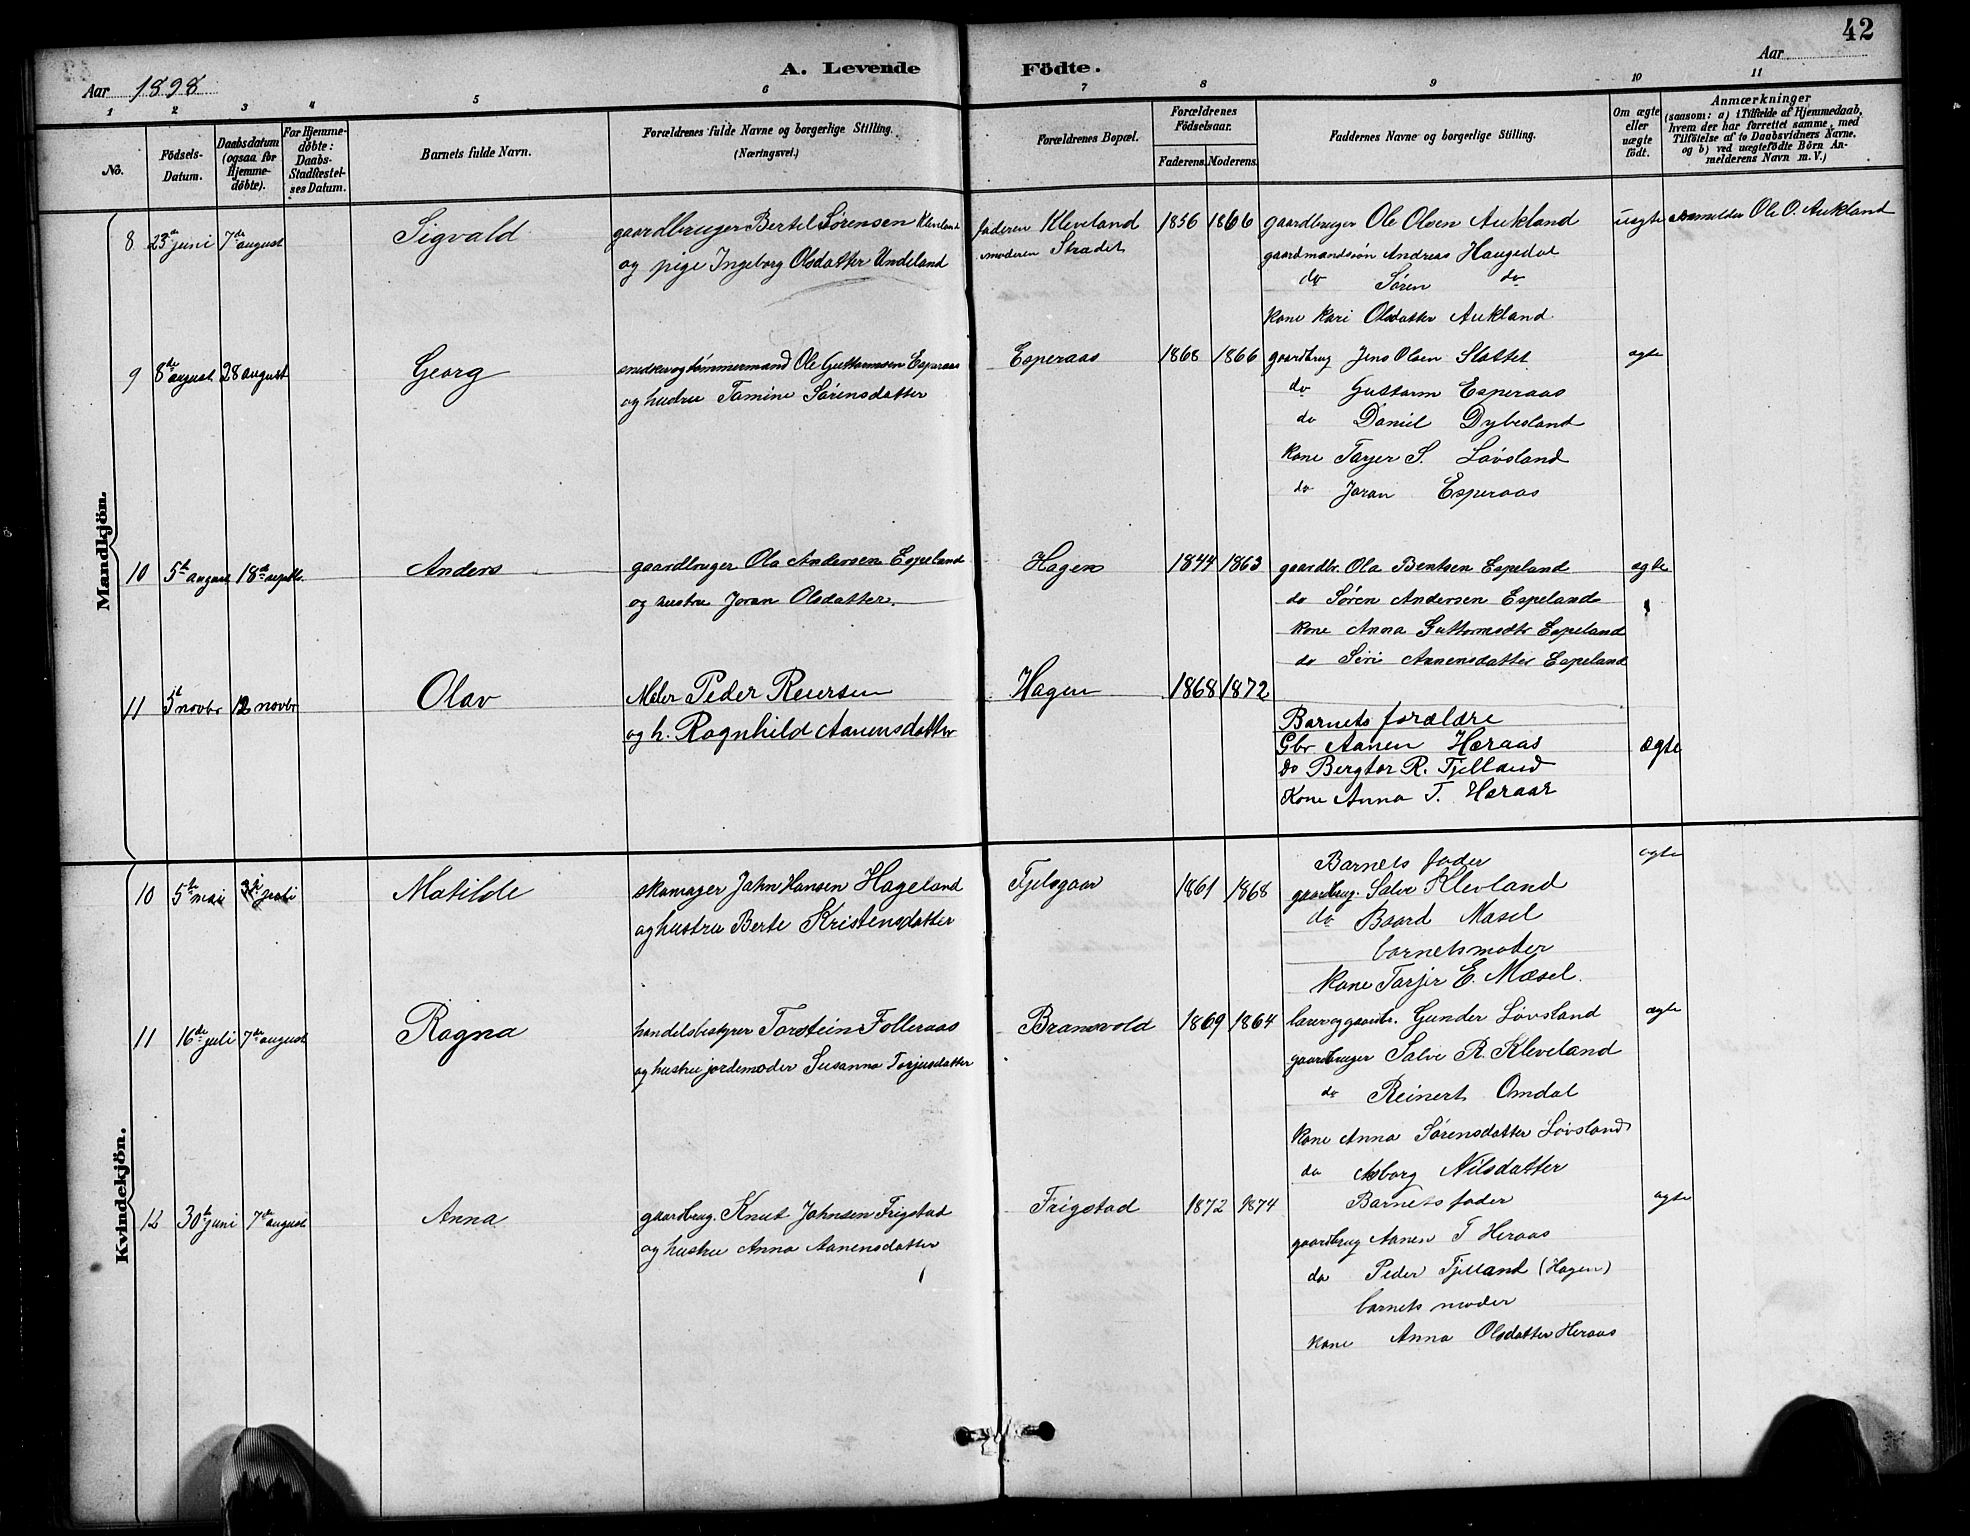 42
Aar 1898
A. Levende Födte.
Aar
1 2 3 4 5 6 7 8 9 10 11
No.
Födsels-Datum.
Daabsdatum (ogsaa for Hjemme-döbte).
For Hjemme-döbte: Daabs-Stadfæstel-ses Datum.
Barnets fulde Navn.
Forældrenes fulde Navne og borgerlige Stilling. (Næringsvei.)
Forældrenes Bopæl.
Forældrenes Födselsaar.
Faderens. Moderens.
Faddernes Navne og borgerlige Stilling.
Om ægte eller uægte födt.
Anmærkninger
(saasom: a) i Tilfælde af Hjemmedaab, hvem der har forrettet samme, med Tilföielse af to Daabsvidners Navne, og b) ved uægtefödte Börn An-melderens Navn m. V.)
Mandkjön.
8 23de juni 7de august Sigvald gaardbruger Bertel Sørensen Kleveland faderen Kleveland 1856 1866 gaardbruger Ole Olsen Aukland uægte anmelder Ole O. Aukland
og pige Ingeborg Olsdatter Undeland moderen Stradet gaardmandssøn Andreas Haugedal
do Søren do
kone Kari Olsdatter Aukland
9 8de august 28 august Georg snedker og tømmermand Ole Guttormsen Esperaas Esperaas 1868 1866 gaardbrug Jens Olsen Slottet ægte
og hustru Tomine Sørensdatter do Guttorm Esperaas
do Daniel Dybesland
kone Tarjer S. Løvsland
do Joran Esperaas
10 5te august 18de septb. Anders gaardbruger Ola Andersen Espeland Hagen 1844 1863 gaardbr. Ola Bentsen Espeland ægte
og hustru Joran Olsdatter. do Søren Andersen Espeland
kone Anna Guttormsdtr Espeland
do Siri Aanensdatter Espeland
11 5t novbr 12 novbr Olav Maler Peder Reiersen Hagen 1868 1872
og h. Ragnhild Aanensdatter Barnets forældre
Gbr Aanen Heraas ægte
do Bergtor R. Tjelland
Kone Anna T. Heraas
Kvindekjön.
10 5te mai Matilde skomager John Hansen Hageland Tjelsgaar 1861 1868 Barnets fader ægte
og hustru Berte Kristensdatter gaardbrug. Salve Klevland
do Baard Mæsel
barnets moder
kone Tarjer E. Mæsel.
11 16de juli 7de august Ragna handelsbestyrer Torstein Folleraas Bransvold 1869 1864 lærer og gaardbr. Gunder Løvsland ægte
og hustru jordemoder Susanna Torjusdatter gaardbruger Salve R. Kleveland
do Reinert Omdal
kone Anna Sørensdatter Løvsland
do Asborg Nilsdatter
12 30te juni 7de august Anna gaardbrug. Knut Johnsen Frigstad Frigstad 1872 1874 Barnets fader ægte
og hustru Anna Aanensdatter gaardbrug Aanen T Heraas
do Peder Tjelland (Hagen)
barnets moder
kone Anna Olsdatter Heraas